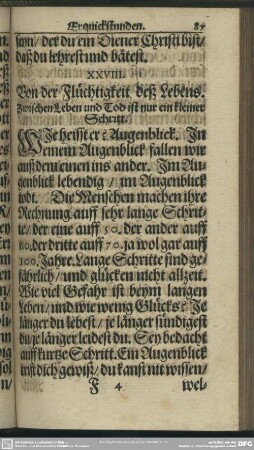 Erquickstunden. 87
seyn / der du ein Diener Christi bist /
daß du lehrest und bätest.
XXVIII.
Von der Flüchtigkeit deß Lebens.
Zwischen Leben und Tod ist nur ein kleiner
Schritt.
Wie heisst er? Augenblick. In
einem Augenblick fallen wir
auß dem einen ins ander. Im Au-
genblick lebendig / im Augenblick
todt. Die Menschen machen ihre
Rechnung auff sehr lange Schrit-
te / der eine auff 50. der ander auff
80. der dritte auff 70. ja wol gar auff
100. Jahre. Lange Schritte sind ge-
fährlich / und glücken nicht allzeit.
Wie viel Gefahr ist beym langen
Leben / und wie wenig Glücks? Je
länger du lebest / je länger sündigest
du / je länger leidest du. Sey bedacht
auff kurtze Schritt. Ein Augenblick
ists dich gewiß / du kanst nit wissen /
F 4 wel-